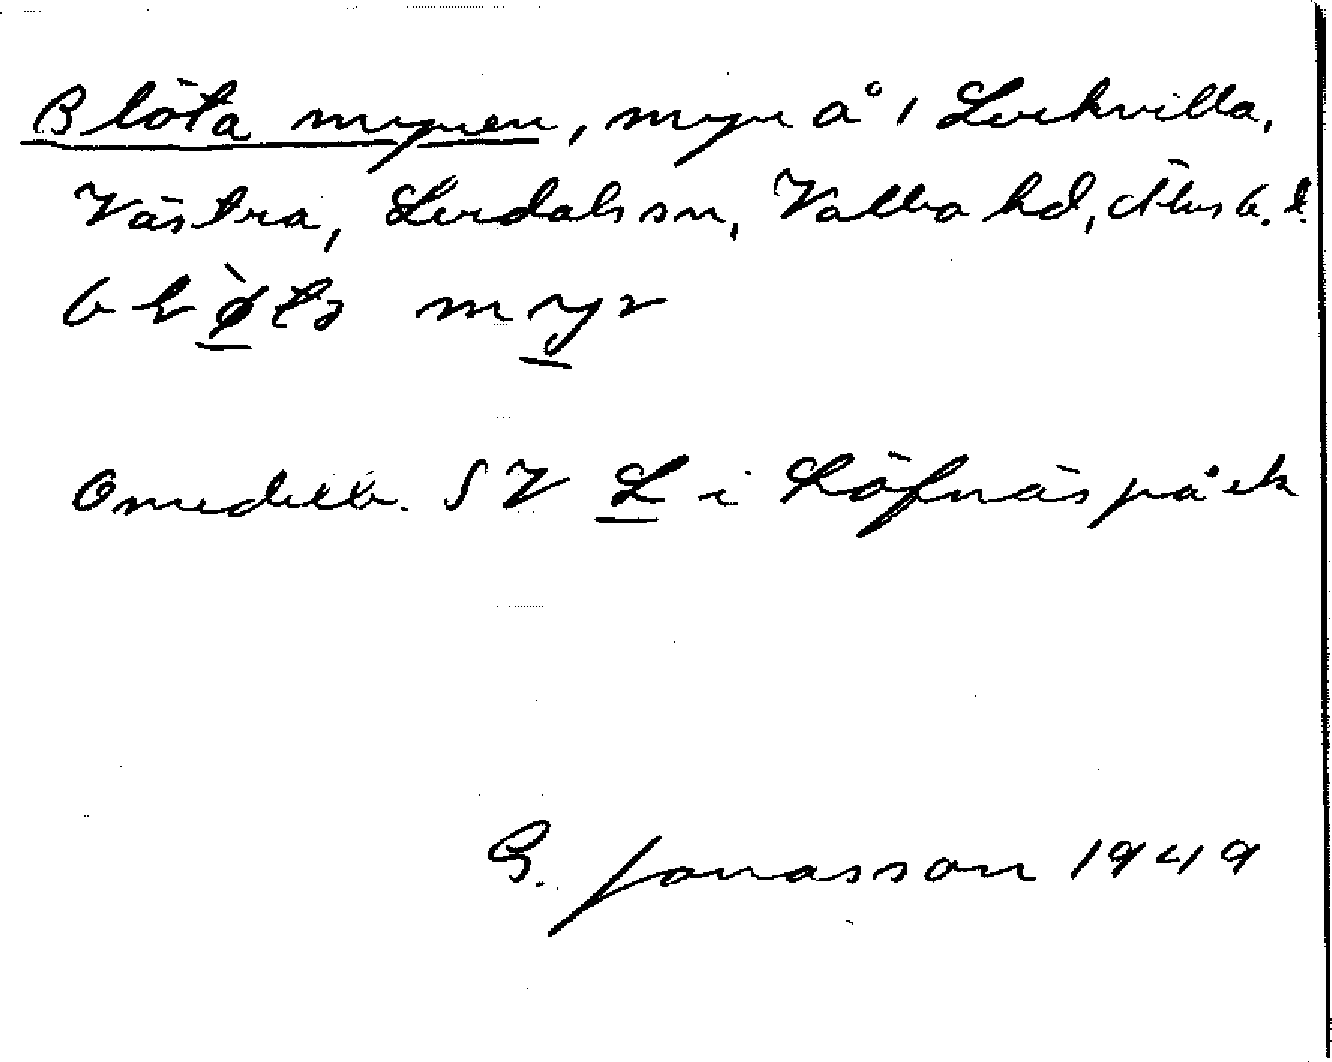 Blöta myren, myr å 1 Lerkvilla,
Västra, Lerdals sn, Valbo hd, Älvsb. l.
bl ø̀ta myr
Omedelb. SV L i
G. Jonasson 1949